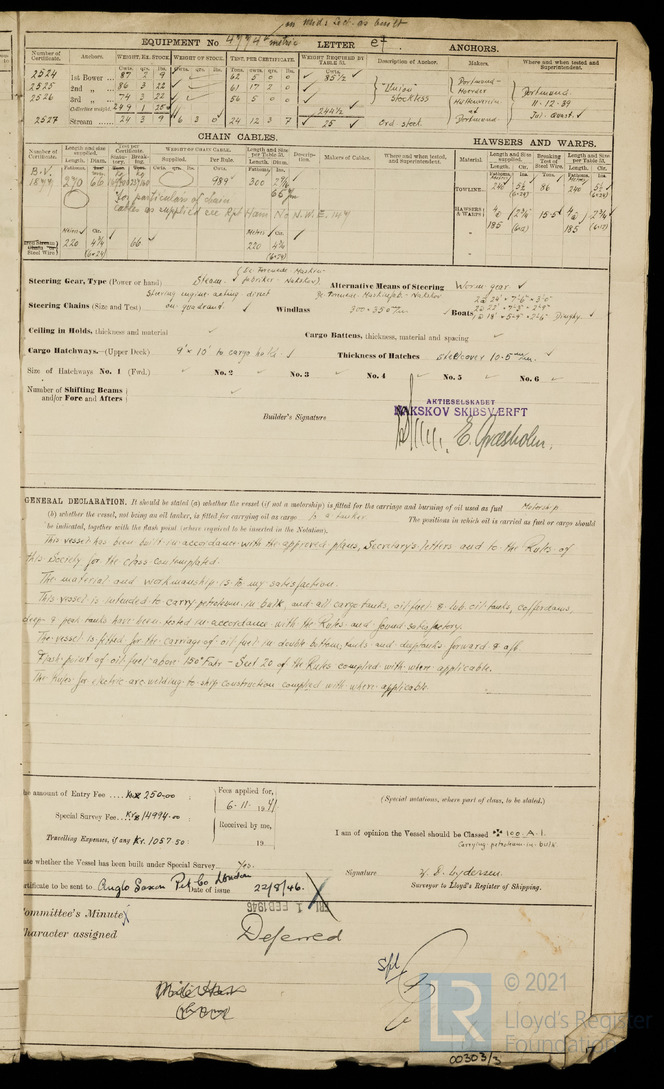 in Mids Sect. as built
EQUIPMENT No. 4794 metric LETTER et. ANCHORS.
Number of Certificate. Anchors. WEIGHT, EX. STOCK. WEIGHT OF STOCK. TEST, PER CERTIFICATE. WEIGHT REQUIRED BY TABLE 53. Description of Anchor. Makers. Where and when tested and Superintendent.
Cwts. qrs. lbs. Cwts. qrs. lbs. Tons. cwts. qrs. lbs. Cwts.
2524 1st Bower ... 87 2 9 62 5 0 0 85½
2525 2nd „ ... 86 3 22 61 17 2 0 Union Stockless
2526 3rd „ ... 74 3 22 56 5 0 0
Collective weight 249 1 25 244½
2527 Stream ... 24 3 9 6 3 0 24 12 3 7 25 Ord. steel.
Dortmund- Hoerder Hüttenverein Dortmund
Dortmund. 11-12-39
CHAIN CABLES. HAWSERS AND WARPS.
Number of Certificate. Length and size supplied. Test per Certificate. WEIGHT OF CHAIN CABLE. Length and Size per Table 53. Description. Makers of Cables. Where and when tested, and Superintendent. Material. Length and Size supplied. Breaking Test of Steel Wire. Length and Size per Table 53.
Length. Diam. Statutory. Breaking. Supplied. Per Rule. Length. Diam.
B.V. 1877 270 66 989 300 2 3/16
For particulars of chain cables as supplied see Rpt Ham No N.W.E. 147
TOWLINE 240 5½ (6×24) 86 240 5½ (6×24)
HAWSERS & WARPS 4 @ 185 2¾ 15.5 4 @ 185 2¾
Steel Wire 220 4¾ (6×24) 66 220 4¾ (6×24)
Steering Gear, Type (Power or hand) Steam. Alternative Means of Steering Worm gear
Steering engine acting direct on quadrant
Steering Chains (Size and Test) Windlass 300×350 m/m Boats
Ceiling in Holds, thickness and material Cargo Battens, thickness, material and spacing
Cargo Hatchways.—(Upper Deck) 9' × 10' to cargo holds. Thickness of Hatches steelcover 10.5 m/m.
Size of Hatchways No. 1 (Fwd.) No. 2 No. 3 No. 4 No. 5 No. 6
Number of Shifting Beams and/or Fore and Afters
AKTIESELSKABET
NAKSKOV SKIBSVÆRFT
Builder's Signature
GENERAL DECLARATION. It should be stated (a) whether the vessel (if not a motorship) is fitted for the carriage and burning of oil used as fuel Motorship
(b) whether the vessel, not being an oil tanker, is fitted for carrying oil as cargo Is a tanker The positions in which oil is carried as fuel or cargo should
be indicated, together with the flash point (where required to be inserted in the Notation).
This vessel has been built in accordance with the approved plans, Secretary's letters and to the Rules of
this Society for the class contemplated.
The material and workmanship is to my satisfaction.
This vessel is intended to carry petroleum in bulk, and all cargo tanks, oil fuel & lub. oil tanks, cofferdams,
deep & peak tanks have been tested in accordance with the Rules and found satisfactory.
The vessel is fitted for the carriage of oil fuel in double bottom tanks and deeptanks forward & aft.
Flash point of oil fuel above 150° Fahr – Sect 20 of the Rules complied with where applicable.
The Rules for electric arc welding to ship construction complied with where applicable.
amount of Entry Fee .... Kr 250.00 Fees applied for, 6-11-1941 (Special notations, where part of class, to be stated.)
Special Survey Fee .... Kr 14994.00 Received by me,
Travelling Expenses, if any Kr. 1057.50 19 I am of opinion the Vessel should be Classed ✠ 100.A.1.
Carrying petroleum in bulk
whether the Vessel has been built under Special Survey Yes.
Signature
Surveyor to Lloyd's Register of Shipping.
certificate to be sent to Anglo Saxon Pet. Co London Date of issue 22/8/46.
FRI. 1 FEB 1946
Committee's Minute
Character assigned Deferred
© 2021
Lloyd's Register
Foundation
00303/3
7